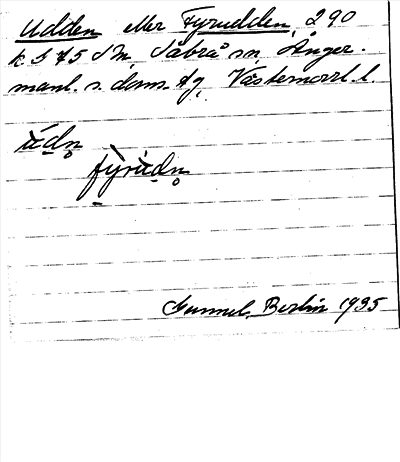 Udden eller Fyrudden, 290
k. 575 S M, Säbrå sn, Ånger-
manl. s. doms. tg, Västernorrl. l.
ùdn̥
fỳrùdn̥
Gunnel Berlin 1935